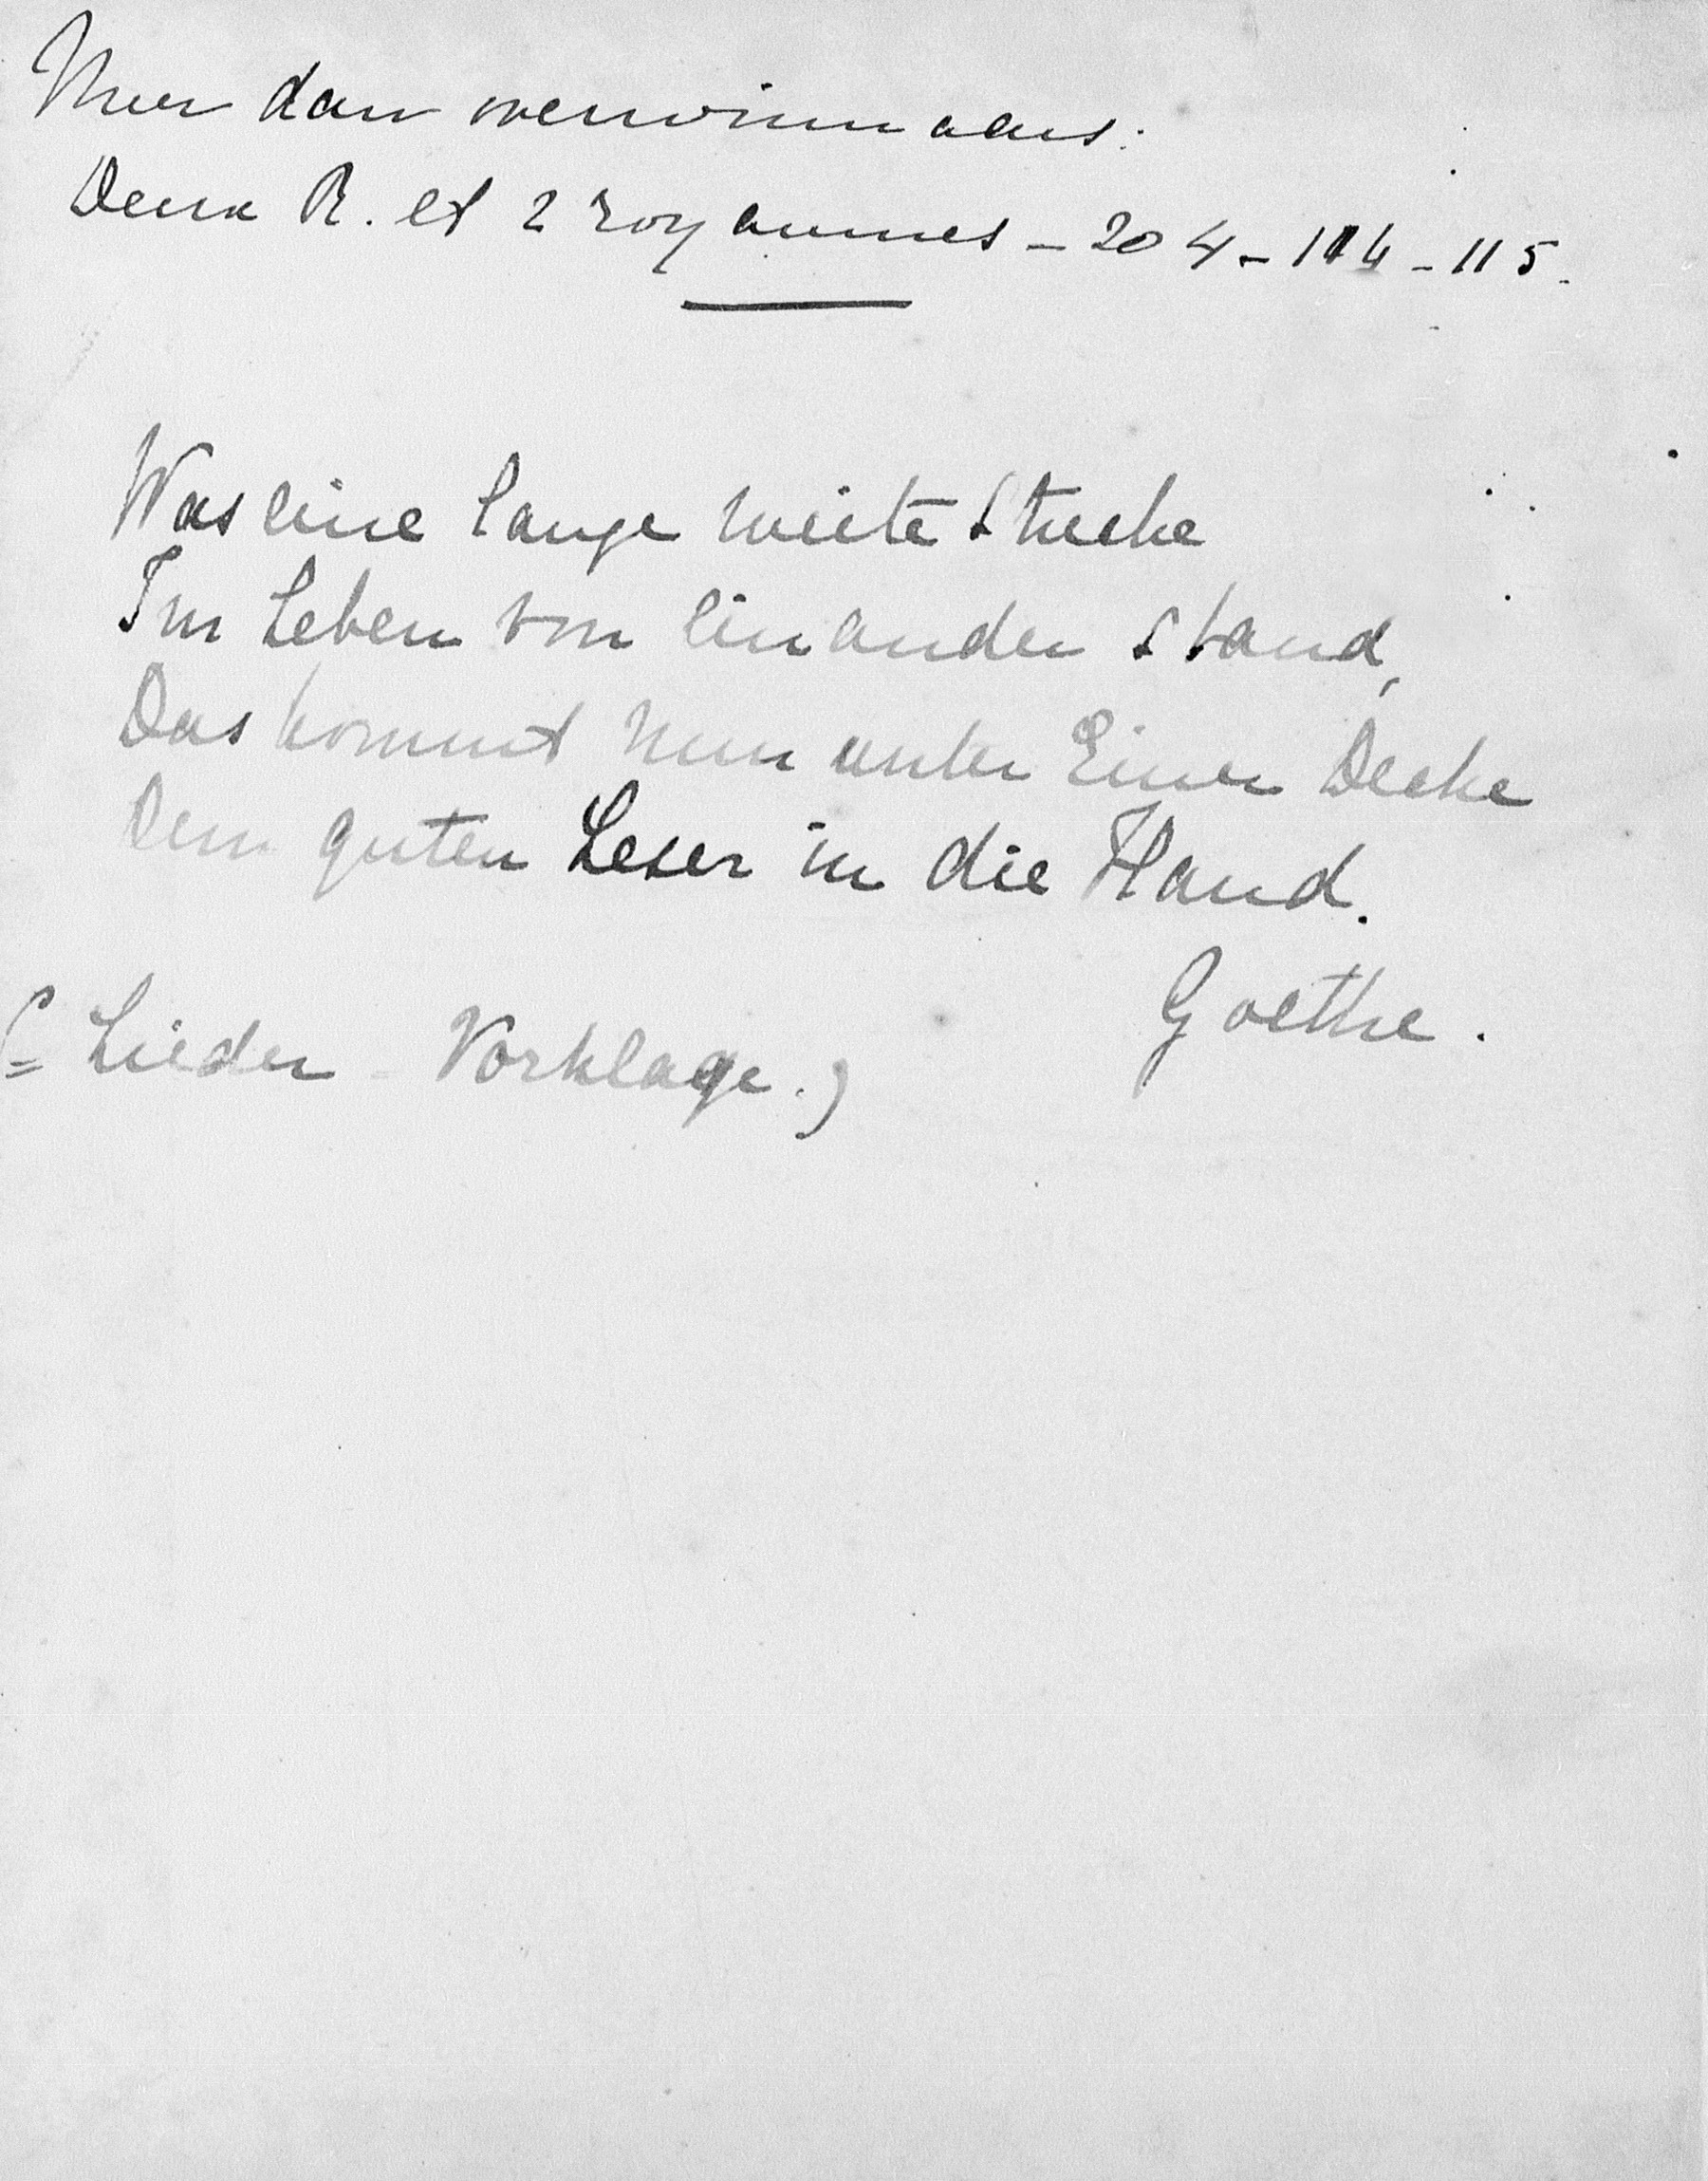 Meer dan overwinnaars:
Deux R. et 2 royaumes - 204 - 114 - 115.
Was eine lange weite Strecke
Im Leben von einander stand,
Das kommt nun unter Einer Decke
Dem guten Leser in die Hand.
Goethe.
(= Lieder - Vorklage.)